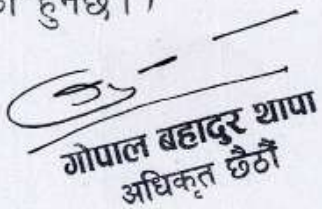 हुनेछ।
गोपाल बहादुर थापा
अधिकृत छैठौँ